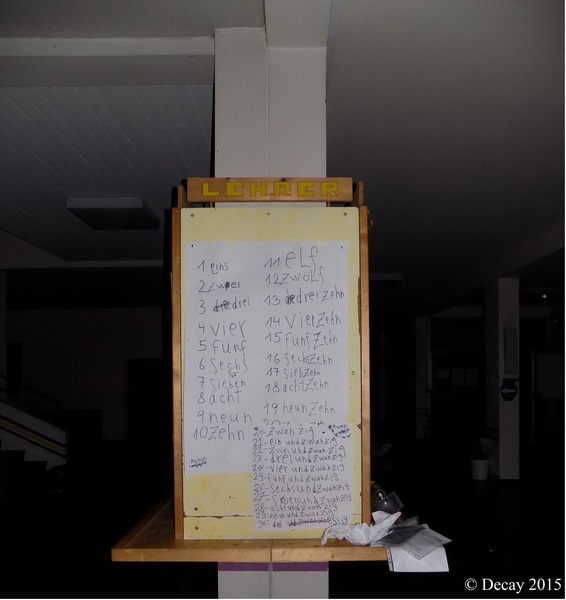 LEHRER
1 eins
2 zwei
3 drei
4 vier
5 fünf
6 Sechs
7 Sieben
8 acht
9 neun
10 Zehn
11 elf
12 zwölf
13 dreizehn
14 VierZehn
15 fünfZehn
16 SechZehn
17 SiebZehn
18 achtZehn
19 neunZehn
20 - Zwanzig
21 - ein undzwanzig
22 - zwei undzwanzig
23 - drei undzwanzig
24 - vier undzwanzig
25 - fünf undzwanzig
26 - Sechs undzwanzig
27 - undzwanzig
28 - acht undzwanzig
29 - neun undzwanzig
30 -
© Decay 2015